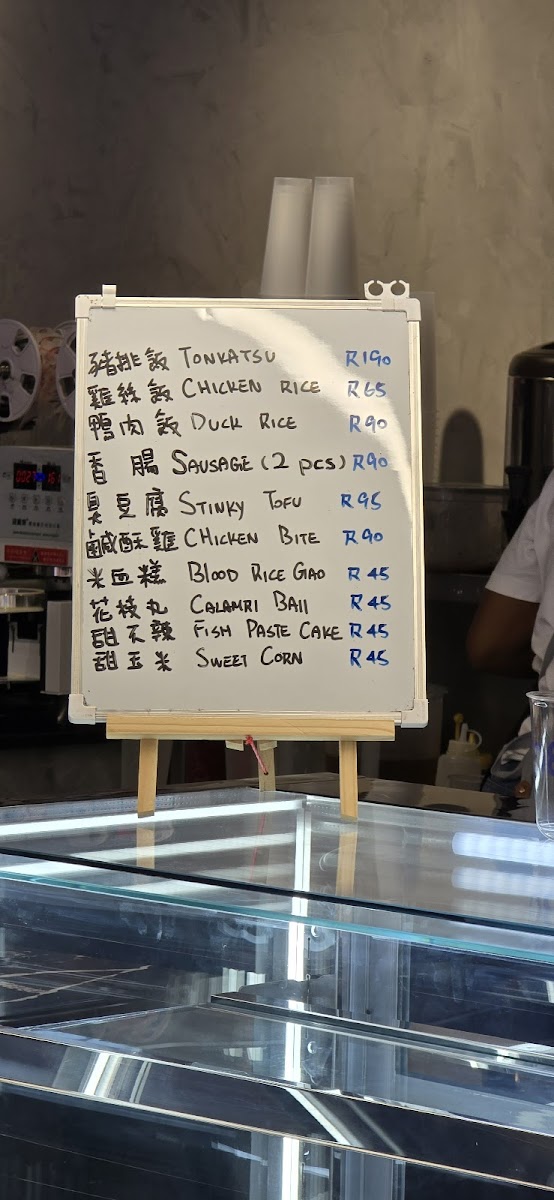 豬排飯 TONKATSU R190
雞絲飯 CHICKEN RICE R65
鴨肉飯 DUCK RICE R90
香腸 SAUSAGE (2 pcs) R90
臭豆腐 STINKY TOFU R95
鹹酥雞 CHICKEN BITE R90
米血糕 BLOOD RICE GAO R45
花枝丸 CALAMRI BAll R45
甜不辣 FISH PASTE CAKE R45
甜玉米 SWEET CORN R45